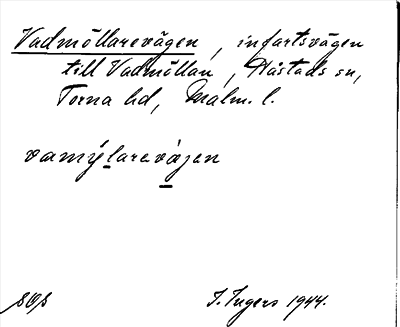 Vadmöllarevägen, infartsvägen
till Vadmöllan, Håstads sn,
Torna hd, Malm. l.
vamýlarevägen
I. Ingers 1944.